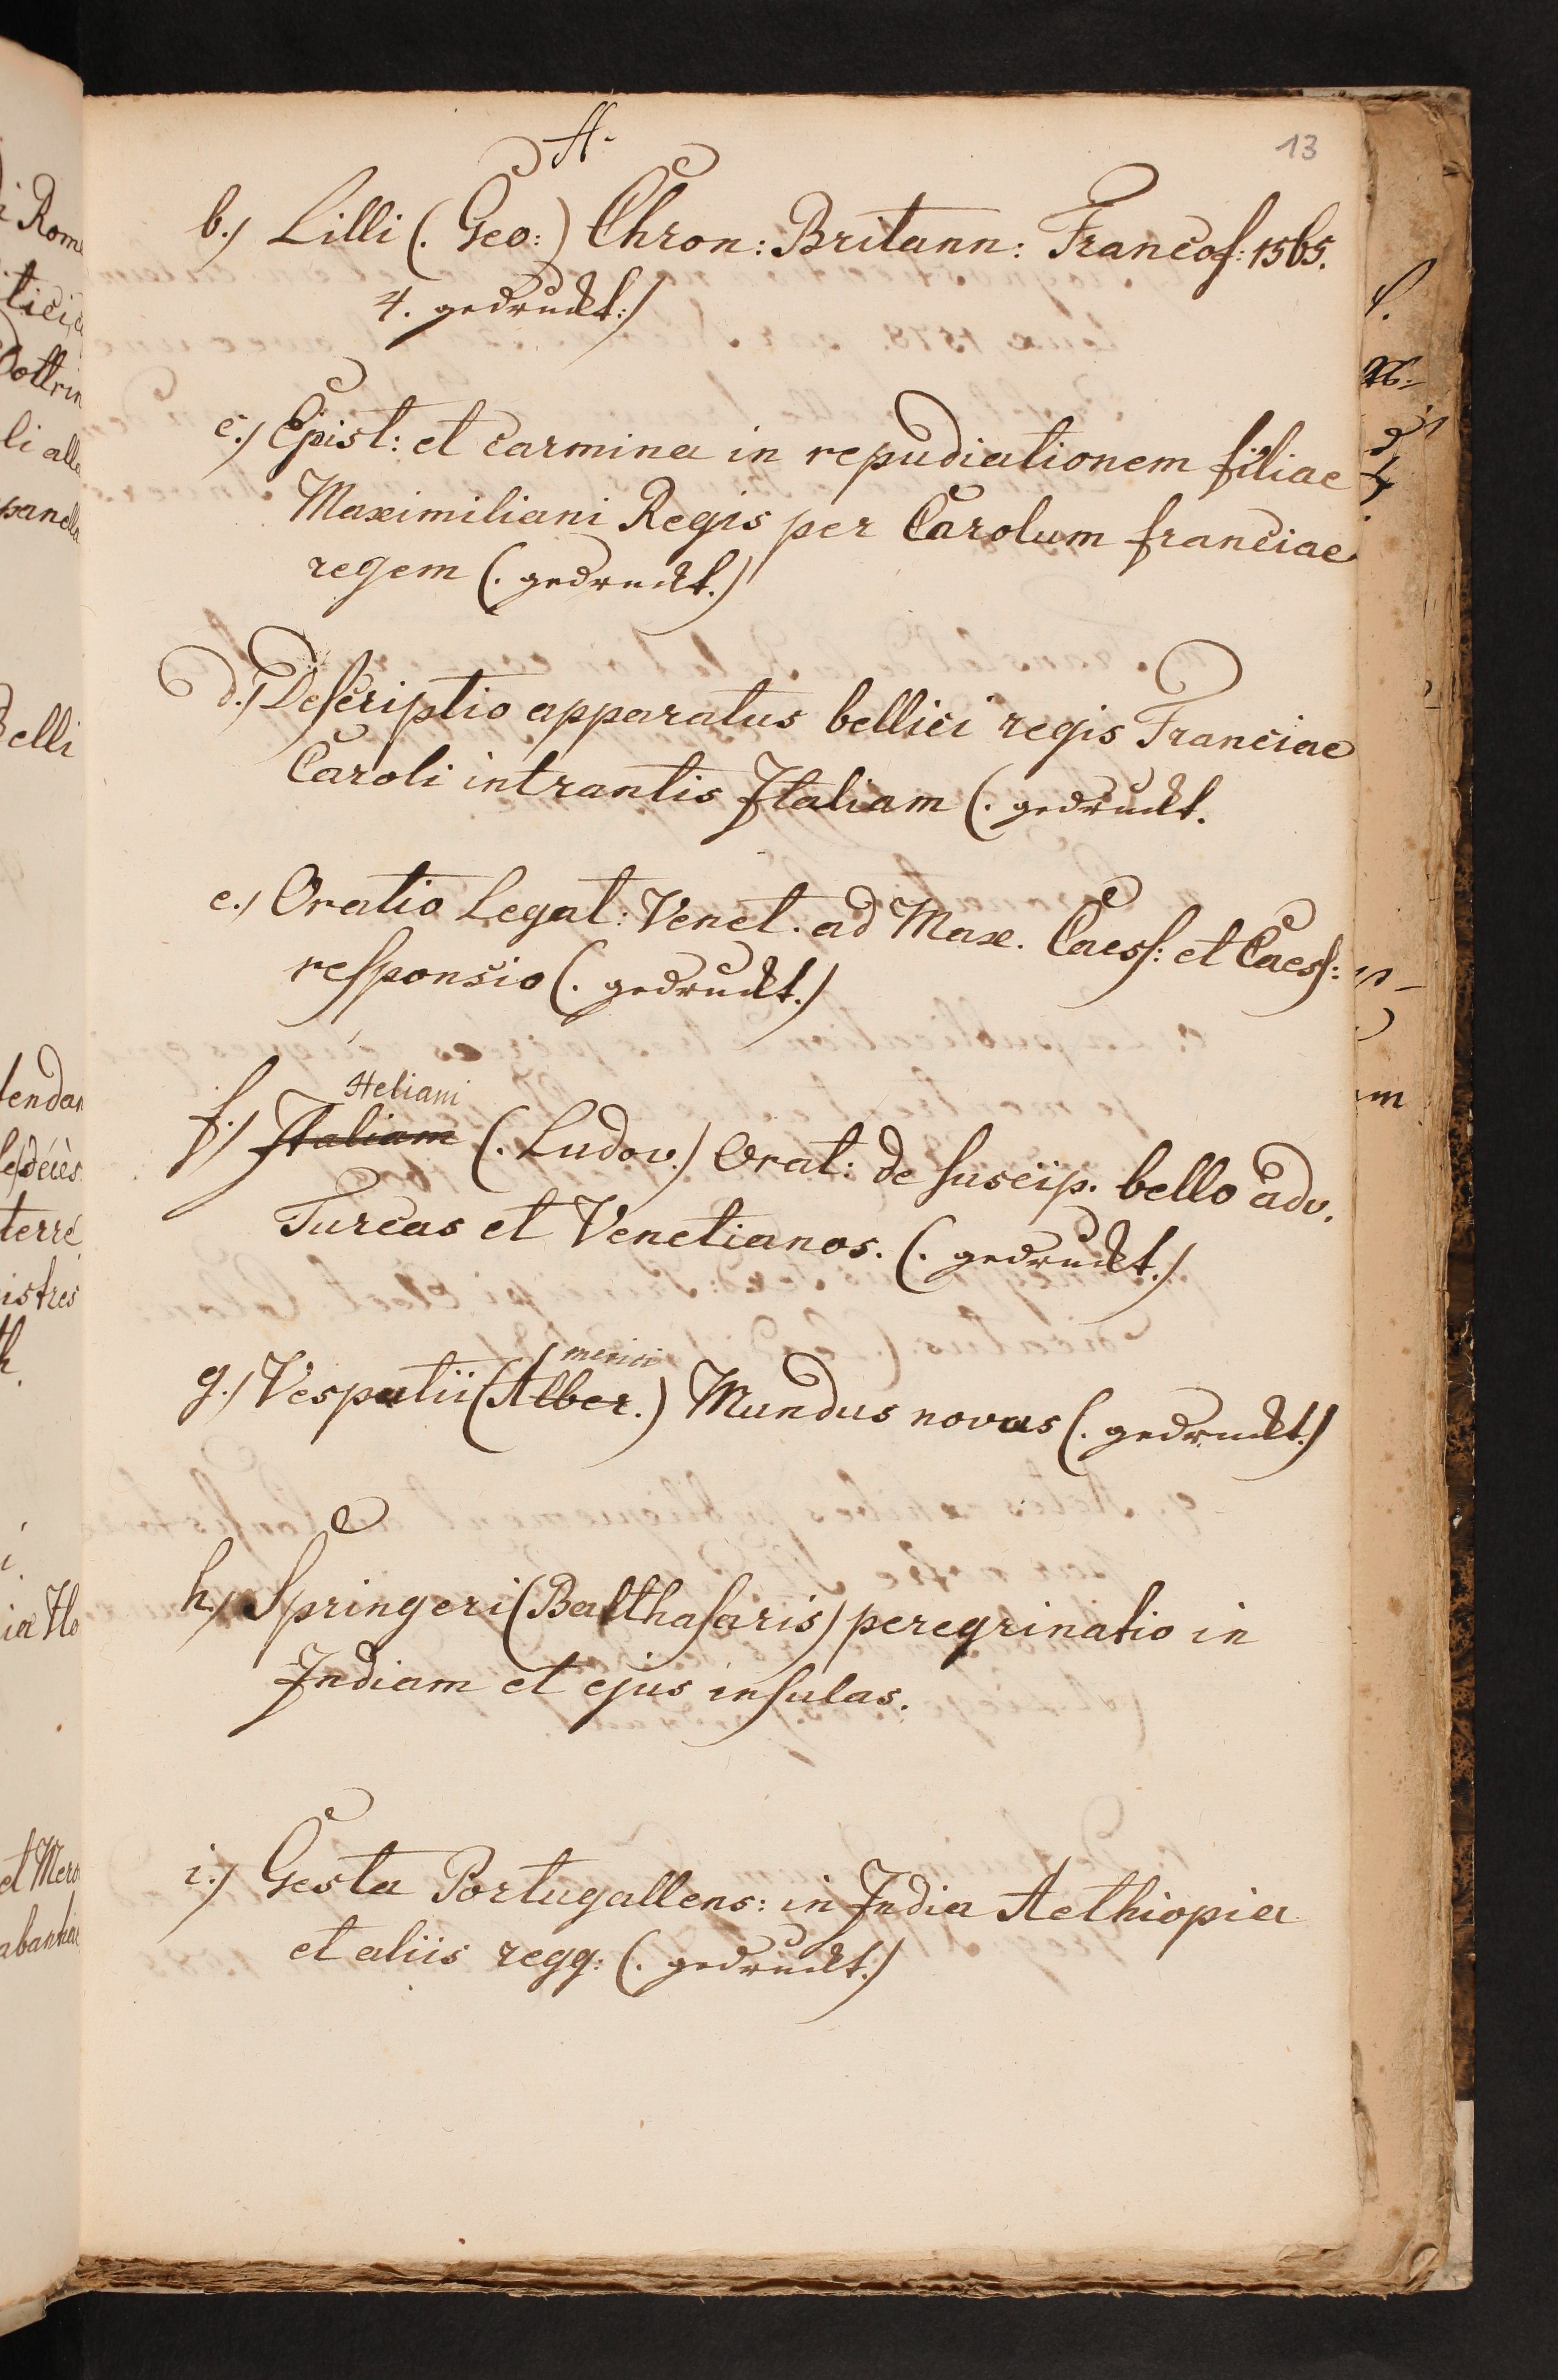 A.
13
b.) Lilli (. Geo:) Chron: Britann: Francof: 1565.
4. gedruckt:)
c.) Epist: et carmina in repudiationem filiae
Maximiliani Regis per Carolum franciae
regem (. gedruckt.)
d.) Deſcriptio apparatus bellici regis Franciae
Caroli intrantis Italiam (. gedruckt.
e.) Oratio Legat: Venet. ad Max. Caeſſ: et Caeſſ:
reſponsio (. gedruckt.)
Heliani
f.) Italiam (. Ludov.) Orat: de ſuscip. bello adv.
Turcas et Venetianos. (. gedruckt.)
merici
g.) Vesputii (Alber.) Mundus novus (. gedruckt.)
h.) Springeri (Balthaſaris) peregrinatio in
Indiam et ejus inſulas.
i.) Gesta Portugallens: in India Aethiopia
et aliis regg: (. gedruckt.)